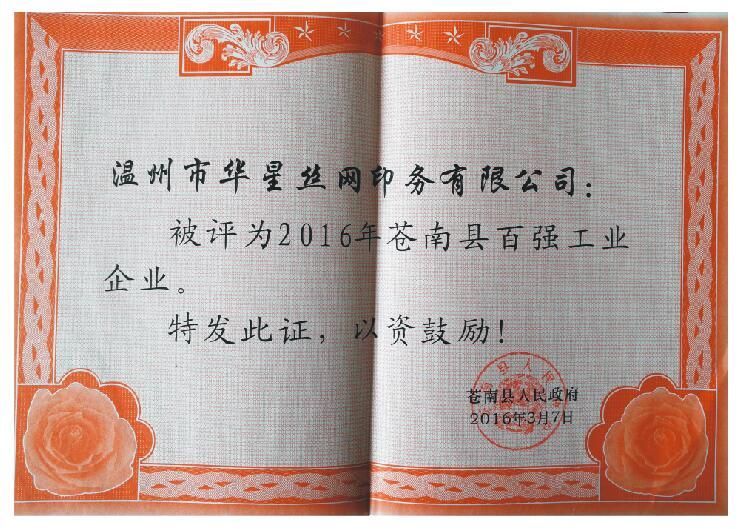 温州市华星丝网印务有限公司：
被评为2016年苍南县百强工业
企业。
特发此证，以资鼓励！
苍南县人民政府
2016年3月7日